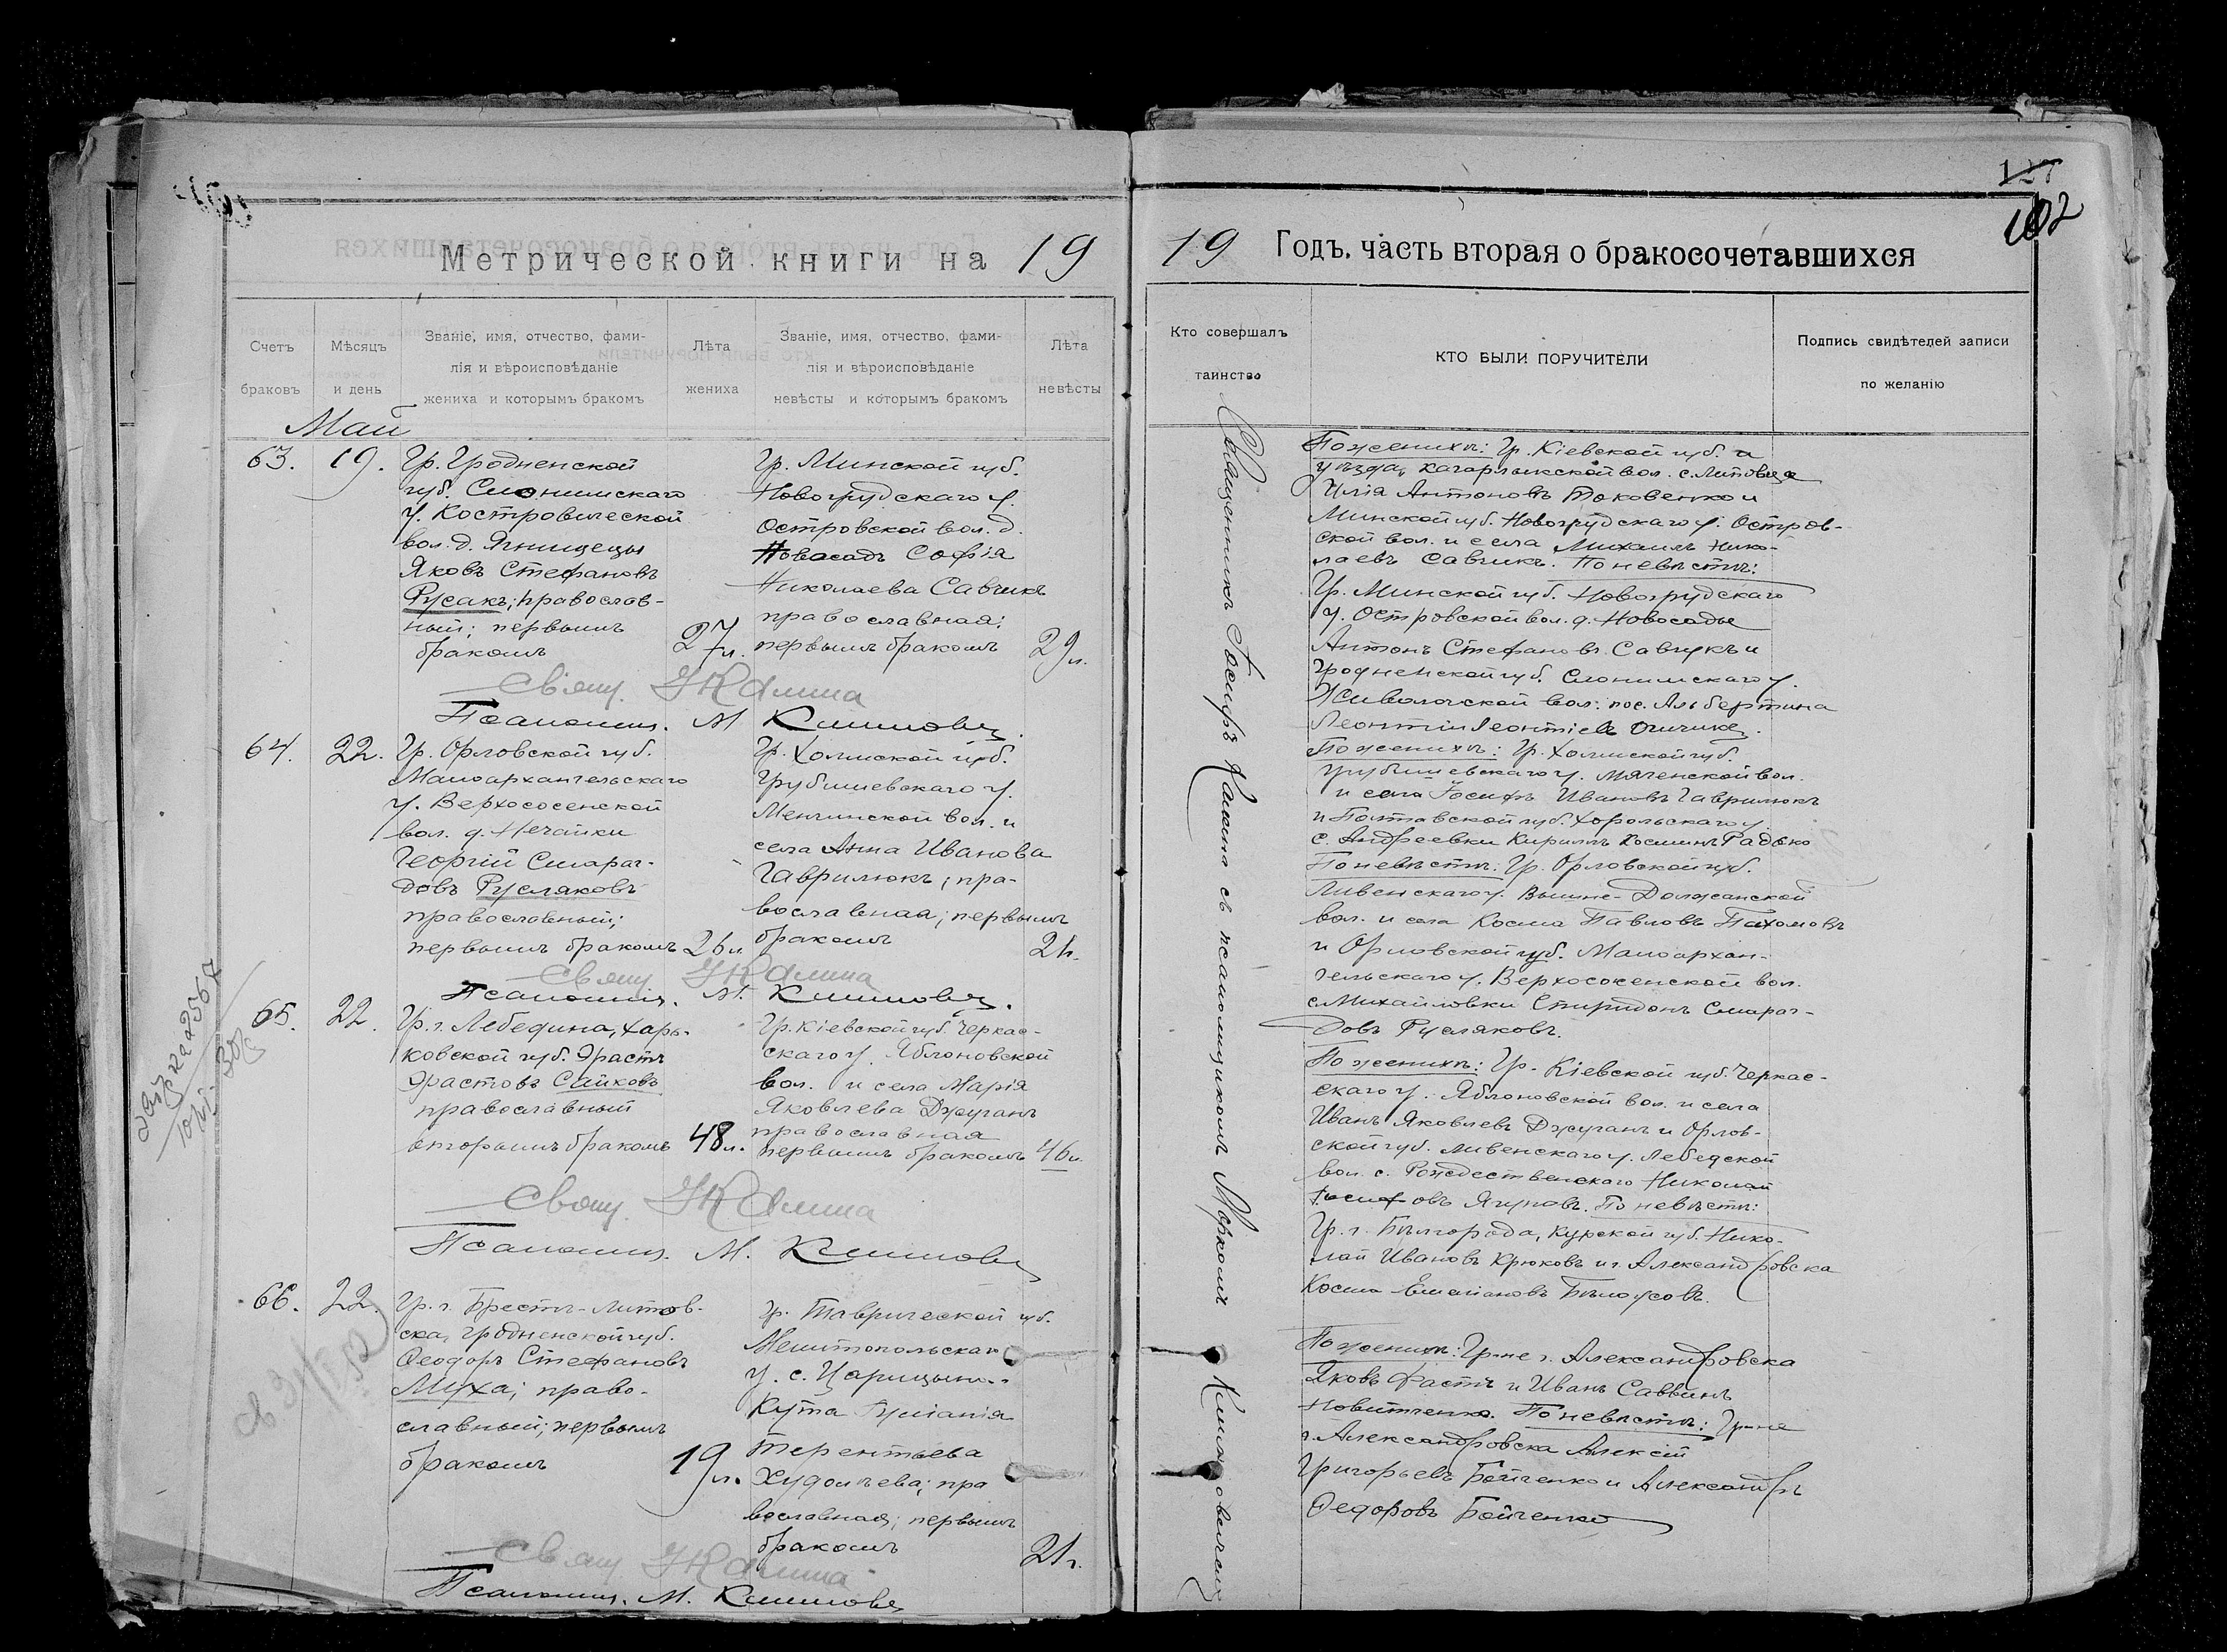 127
102
Метрической книги на 19
19 Годъ, часть вторая о бракосочетавшихся
Счетъ браковъ
Мѣсяцъ и день
Званіе, имя, отчество, фами-
лія и вѣроисповѣданіе
жениха и которымъ бракомъ
Лѣта жениха
Званіе, имя, отчество, фами-
лія и вѣроисповѣданіе
невѣсты и которымъ бракомъ
Лѣта невѣсты
Кто совершалъ таинство
КТО БЫЛИ ПОРУЧИТЕЛИ
Подпись свидѣтелей записи
по желанію
Май
63. 19.
Гр. Гродненской
губ. Слонимскаго
у. Костровичской
вол. д.
Яковъ Стефановъ
Русакъ; православ-
ный; первымъ
бракомъ
27 л.
Гр. Минской губ.
Новогрудскаго у.
Островской вол. д.
Новосадъ Софія
Николаева Савчикъ
православная;
первымъ бракомъ
29 л.
Свящ. І Калина
Псаломщ. М Климовец
64. 22.
Гр. Орловской губ.
Малоархангельскаго
у. Верхососенской
вол. д. Нечайки
Георгій Смараг-
довъ Русляковъ
православный;
первымъ бракомъ
26 л.
Гр. Холмской губ.
Грубешевскаго у.
Менчинской вол. и
села Анна Иванова
Гаврилюкъ; пра-
вославная; первымъ
бракомъ
21 г.
Свящ І Калина
Псаломщ. М. Климовец.
65. 22.
Гр. г. Лебедина, Харь-
ковской губ. Эрастъ
Эрастовъ Сайковъ
православный
вторымъ бракомъ
48 л.
Гр. Кіевской губ. Черкас-
скаго у. Яблоновской
вол. и села Марія
Яковлева Джуганъ
православная
первымъ бракомъ
46 л.
Свящ. І Калина
Псаломщ. М. Климовец
66. 22.
Гр. г. Брестъ-Литов-
ска, Гродненской губ.
Ѳеодоръ Стефановъ
Муха; право-
славный; первымъ
бракомъ
19 л.
гр. Таврической губ.
Мелитопольскаго
у. с. Царицына
Кута
Терентьева
пра
вославная; первымъ
бракомъ
21 г.
Свящ І Калина
Псаломщ. М. Климовец
Священникъ Іосифъ Калина съ псаломщикомъ Маркомъ Климовецомъ
По женихѣ: Гр. Кіевской губ. и
уѣзда, Кагарлыкской вол. с.
Илія Антоновъ Токовенко и
Минской губ. Новогрудскаго у. Остров-
ской вол. и села Михаилъ Нико-
лаевъ Савчикъ. По невѣстѣ:
Гр. Минской губ. Новогрудскаго
у. Островской вол. д. Новосады
Антонъ Стефановъ Савчукъ и
Гродненской губ. Слонимскаго у.
вол. пос. Альбертина
Леонтій Леонтіевъ
По женихѣ: Гр. Холмской губ.
Грубешевскаго у. Мяченской вол.
и села Іосифъ Ивановъ Гаврилюкъ
и Полтавской губ. Хорольскаго у.
с. Андреевки Кириллъ Косминъ Радько
По невѣстѣ: Гр. Орловской губ.
Ливенскаго у. Вышне-Должанской
вол. и села Косма Павловъ Пахомовъ
и Орловской губ. Малоархан-
гельскаго у. Верхососенской вол.
с. Михайловки Спиридонъ Смараг-
довъ Русляковъ.
По женихѣ: Гр. Кіевской губ. Черкас-
скаго у. Яблоновской вол. и села
Иванъ Яковлевъ Джуганъ и Орлов-
ской губ. Ливенскаго у. Лебедской
вол. с. Рождественскаго Николай
Іосифовъ Ягуновъ. По невѣстѣ:
Гр. г. Бѣлгорода, Курской губ. Нико-
лай Ивановъ Крюковъ и г. Александровска
Косма Емельяновъ Бѣлоусовъ.
По женихѣ: Гр-не г. Александровска
Яковъ Фастъ и Иванъ Саввинъ
По невѣстѣ: Гр-не
г. Александровска Алексѣй
Григорьевъ Бойченко и Александръ
Ѳедоровъ Бойченко